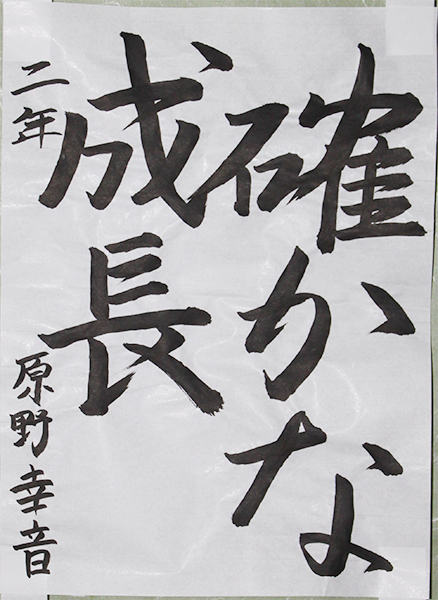 確かな
成長
二年 原野幸音